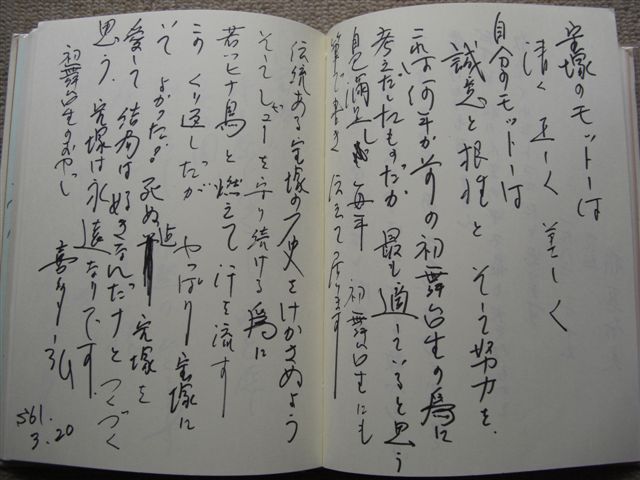 宝塚のモットーは
清く 正しく 美しく
自分のモットーは
誠意と根性と そして努力を
これは何年か前の初舞台生の為に
考えだしたものだが 最も適していると思う
自己満足し 毎年 初舞台生にも
筆で書き 伝えて居ります
伝統ある宝塚の歴史をけがさぬよう
そしてレビューを守り続ける為に
若いヒナ鳥と燃えて汗を流す
このくり返しだが やっぱり宝塚に
いて よかった!! 死ぬ迄 宝塚を
愛して 結局は好きなんだナとつくづく
思う 宝塚は永遠なりです
初舞台生のおやじ
喜多 弘
S61.
3.20